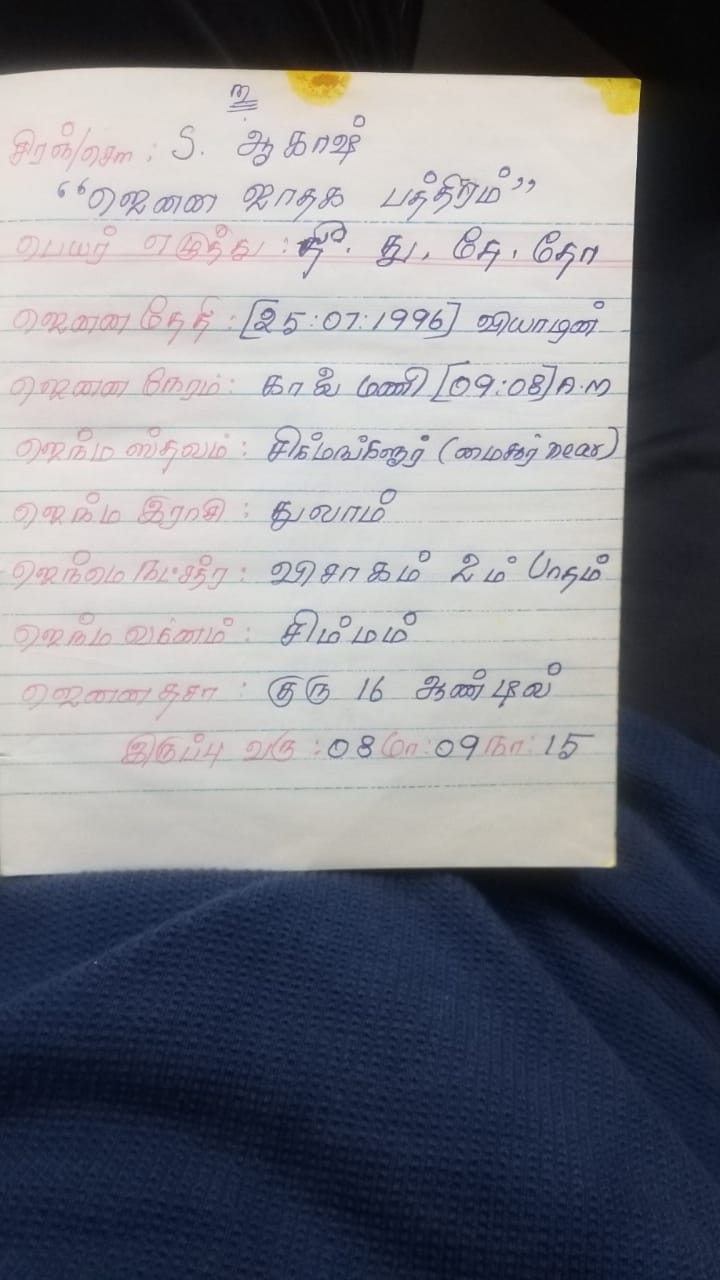 உ
சிரஞ்/சௌ : S. ஆகாஷ்
"ஜெனன ஜாதக பத்திரம்"
பெயர் எழுத்து : தீ. து, தே. தோ
ஜெனன தேதி : [25:07:1996] வியாழன்
ஜெனன நேரம் : காலை மணி [09:08] A.M
ஜெந்ம ஸ்தலம் : சிக்மங்களூர் (மைசூர் near)
ஜெந்ம இராசி : துலாம்
ஜெந்ம நட்சத்ர : விசாகம் 2ம் பாதம்
ஜெந்ம லக்னம் : சிம்மம்
ஜெனன தசா : குரு 16 ஆண்டில்
இருப்பு வரு : 08 மா : 09 நா : 15